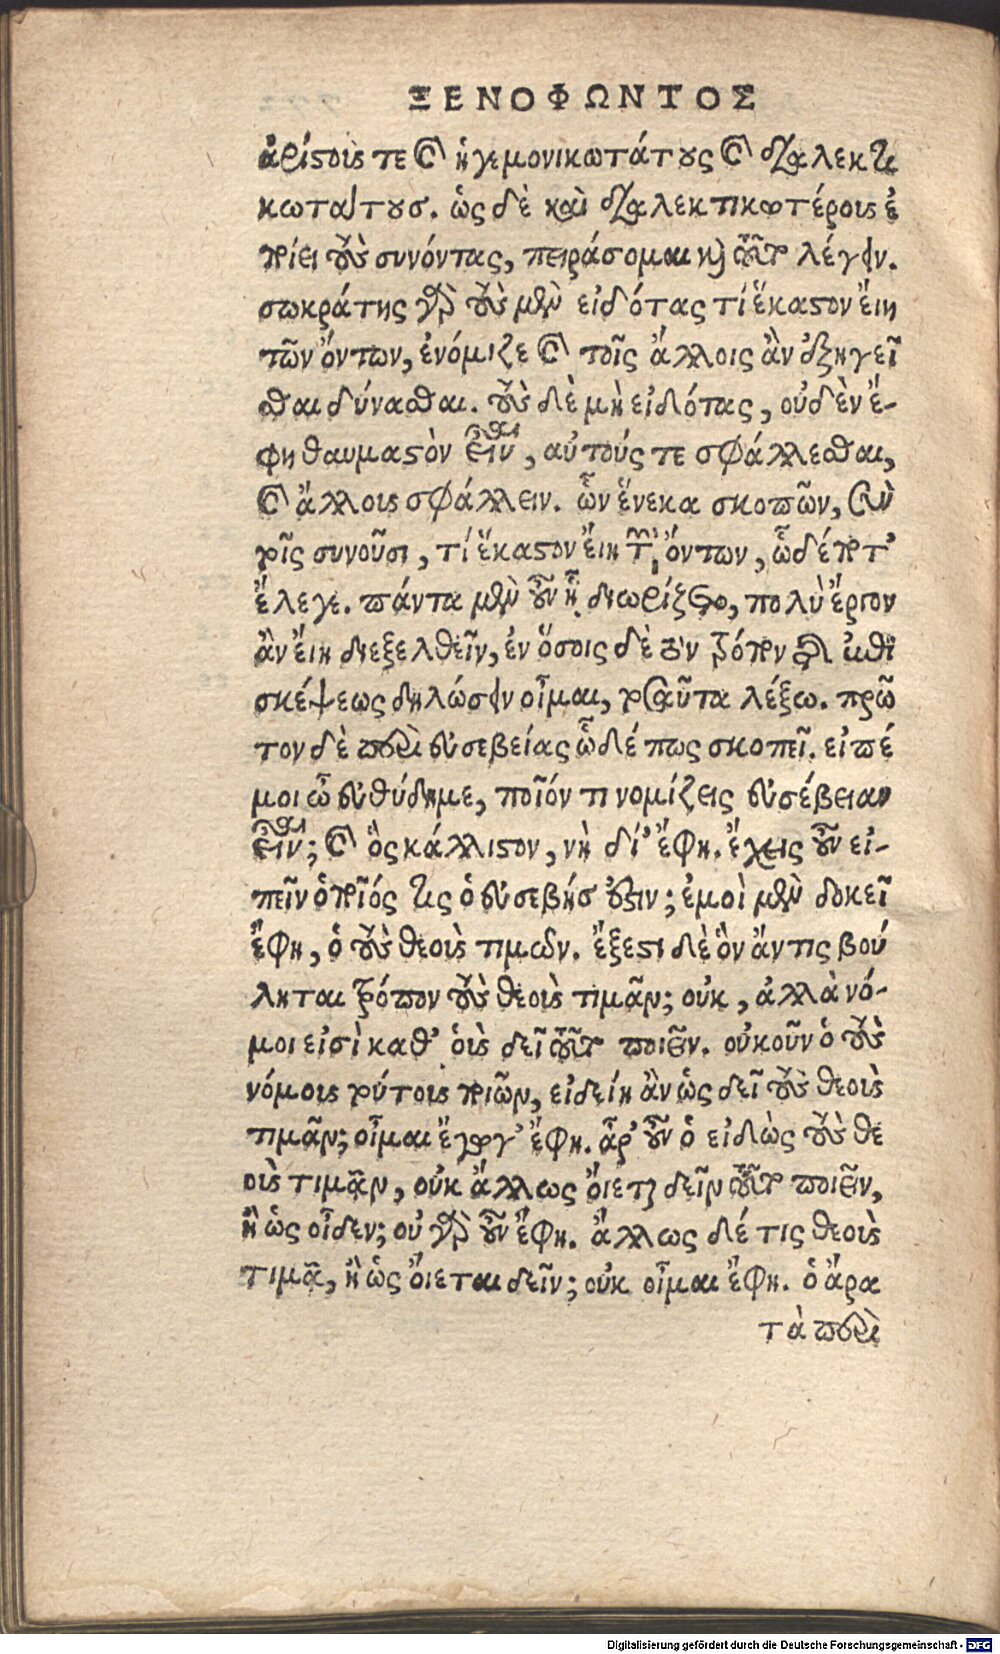 ΞΕΝΟΦΩΝΤΟΣ
ἀρίστους τε καὶ ἡγεμονικωτάτους καὶ διαλεκτι
κωτάτους. ὡς δὲ καὶ διαλεκτικωτέρους ἐ
ποίει τοὺς συνόντας, πειράσομαι καὶ τοῦτο λέγειν.
σωκράτης γὰρ τοὺς μὲν εἰδότας τί ἕκαστον εἴη
τῶν ὄντων, ἐνόμιζε καὶ τοῖς ἄλλοις ἂν ἐξηγεῖ
σθαι δύνασθαι. τοὺς δὲ μὴ εἰδότας, οὐδὲν ἔ-
φη θαυμαστὸν εἶναι, αὐτούς τε σφάλλεσθαι,
καὶ ἄλλους σφάλλειν. ὧν ἕνεκα σκοπῶν, σὺν
τοῖς συνοῦσι, τί ἕκαστον εἴη τῶν ὄντων, ὧδέ ποτ'
ἔλεγε. πάντα μὲν οὖν ᾗ διωρίζετο, πολὺ ἔργον
ἂν εἴη διεξελθεῖν, ἐν ὅσοις δὲ τὸν τρόπον τῆς
σκέψεως δηλώσειν οἶμαι, τοσαῦτα λέξω. πρῶ
τον δὲ περὶ εὐσεβείας ὧδέ πως σκοπεῖ. εἰπέ
μοι ὦ εὐθύδημε, ποῖόν τι νομίζεις εὐσέβειαν
εἶναι; καὶ ὃς κάλλιστον, νὴ δί' ἔφη. ἔχεις οὖν εἰ-
πεῖν ὁποῖός τις ὁ εὐσεβής ἐστιν; ἐμοὶ μὲν δοκεῖ
ἔφη, ὁ τοὺς θεοὺς τιμῶν. ἔξεστι δὲ ὃν ἄν τις βού
ληται τρόπον τοὺς θεοὺς τιμᾶν; οὐκ, ἀλλὰ νό-
μοι εἰσὶ καθ' οὓς δεῖ τοῦτο ποιεῖν. οὐκοῦν ὁ τοὺς
νόμους τούτους ποιῶν, εἰδείη ἂν ὡς δεῖ τοὺς θεοὺς
τιμᾶν; οἶμαι ἔγωγ' ἔφη. ἆρ' οὖν ὁ εἰδὼς τοὺς θε
οὺς τιμᾶν, οὐκ ἄλλως οἴεται δεῖν τοῦτο ποιεῖν,
ἢ ὡς οἶδεν; οὐ γὰρ οὖν ἔφη. ἄλλως δέ τις θεοὺς
τιμᾷ, ἢ ὡς οἴεται δεῖν; οὐκ οἶμαι ἔφη. ὁ ἄρα
τὰ περὶ
Digitalisierung gefördert durch die Deutsche Forschungsgemeinschaft - DFG